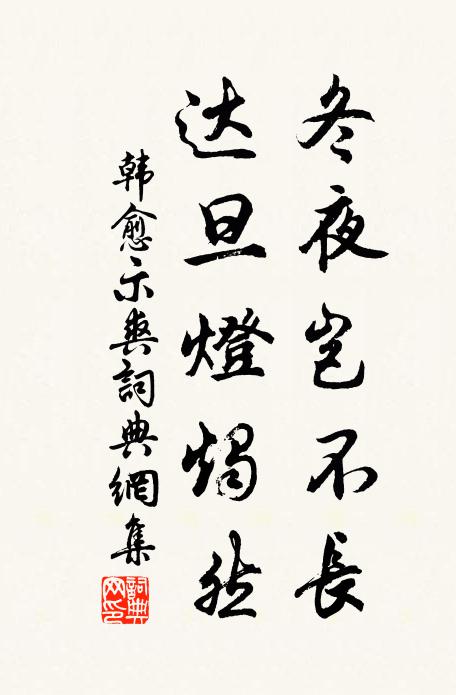 冬夜岂不長
达旦燈燭然
韩愈示爽詞典網集
詞典网印